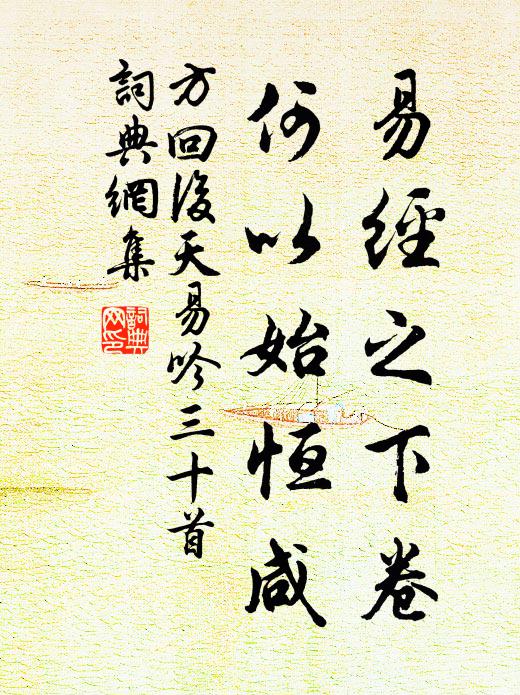 易經之下卷
何以始恒咸
方回後天易吟三十首
詞典網集
詞典
网印